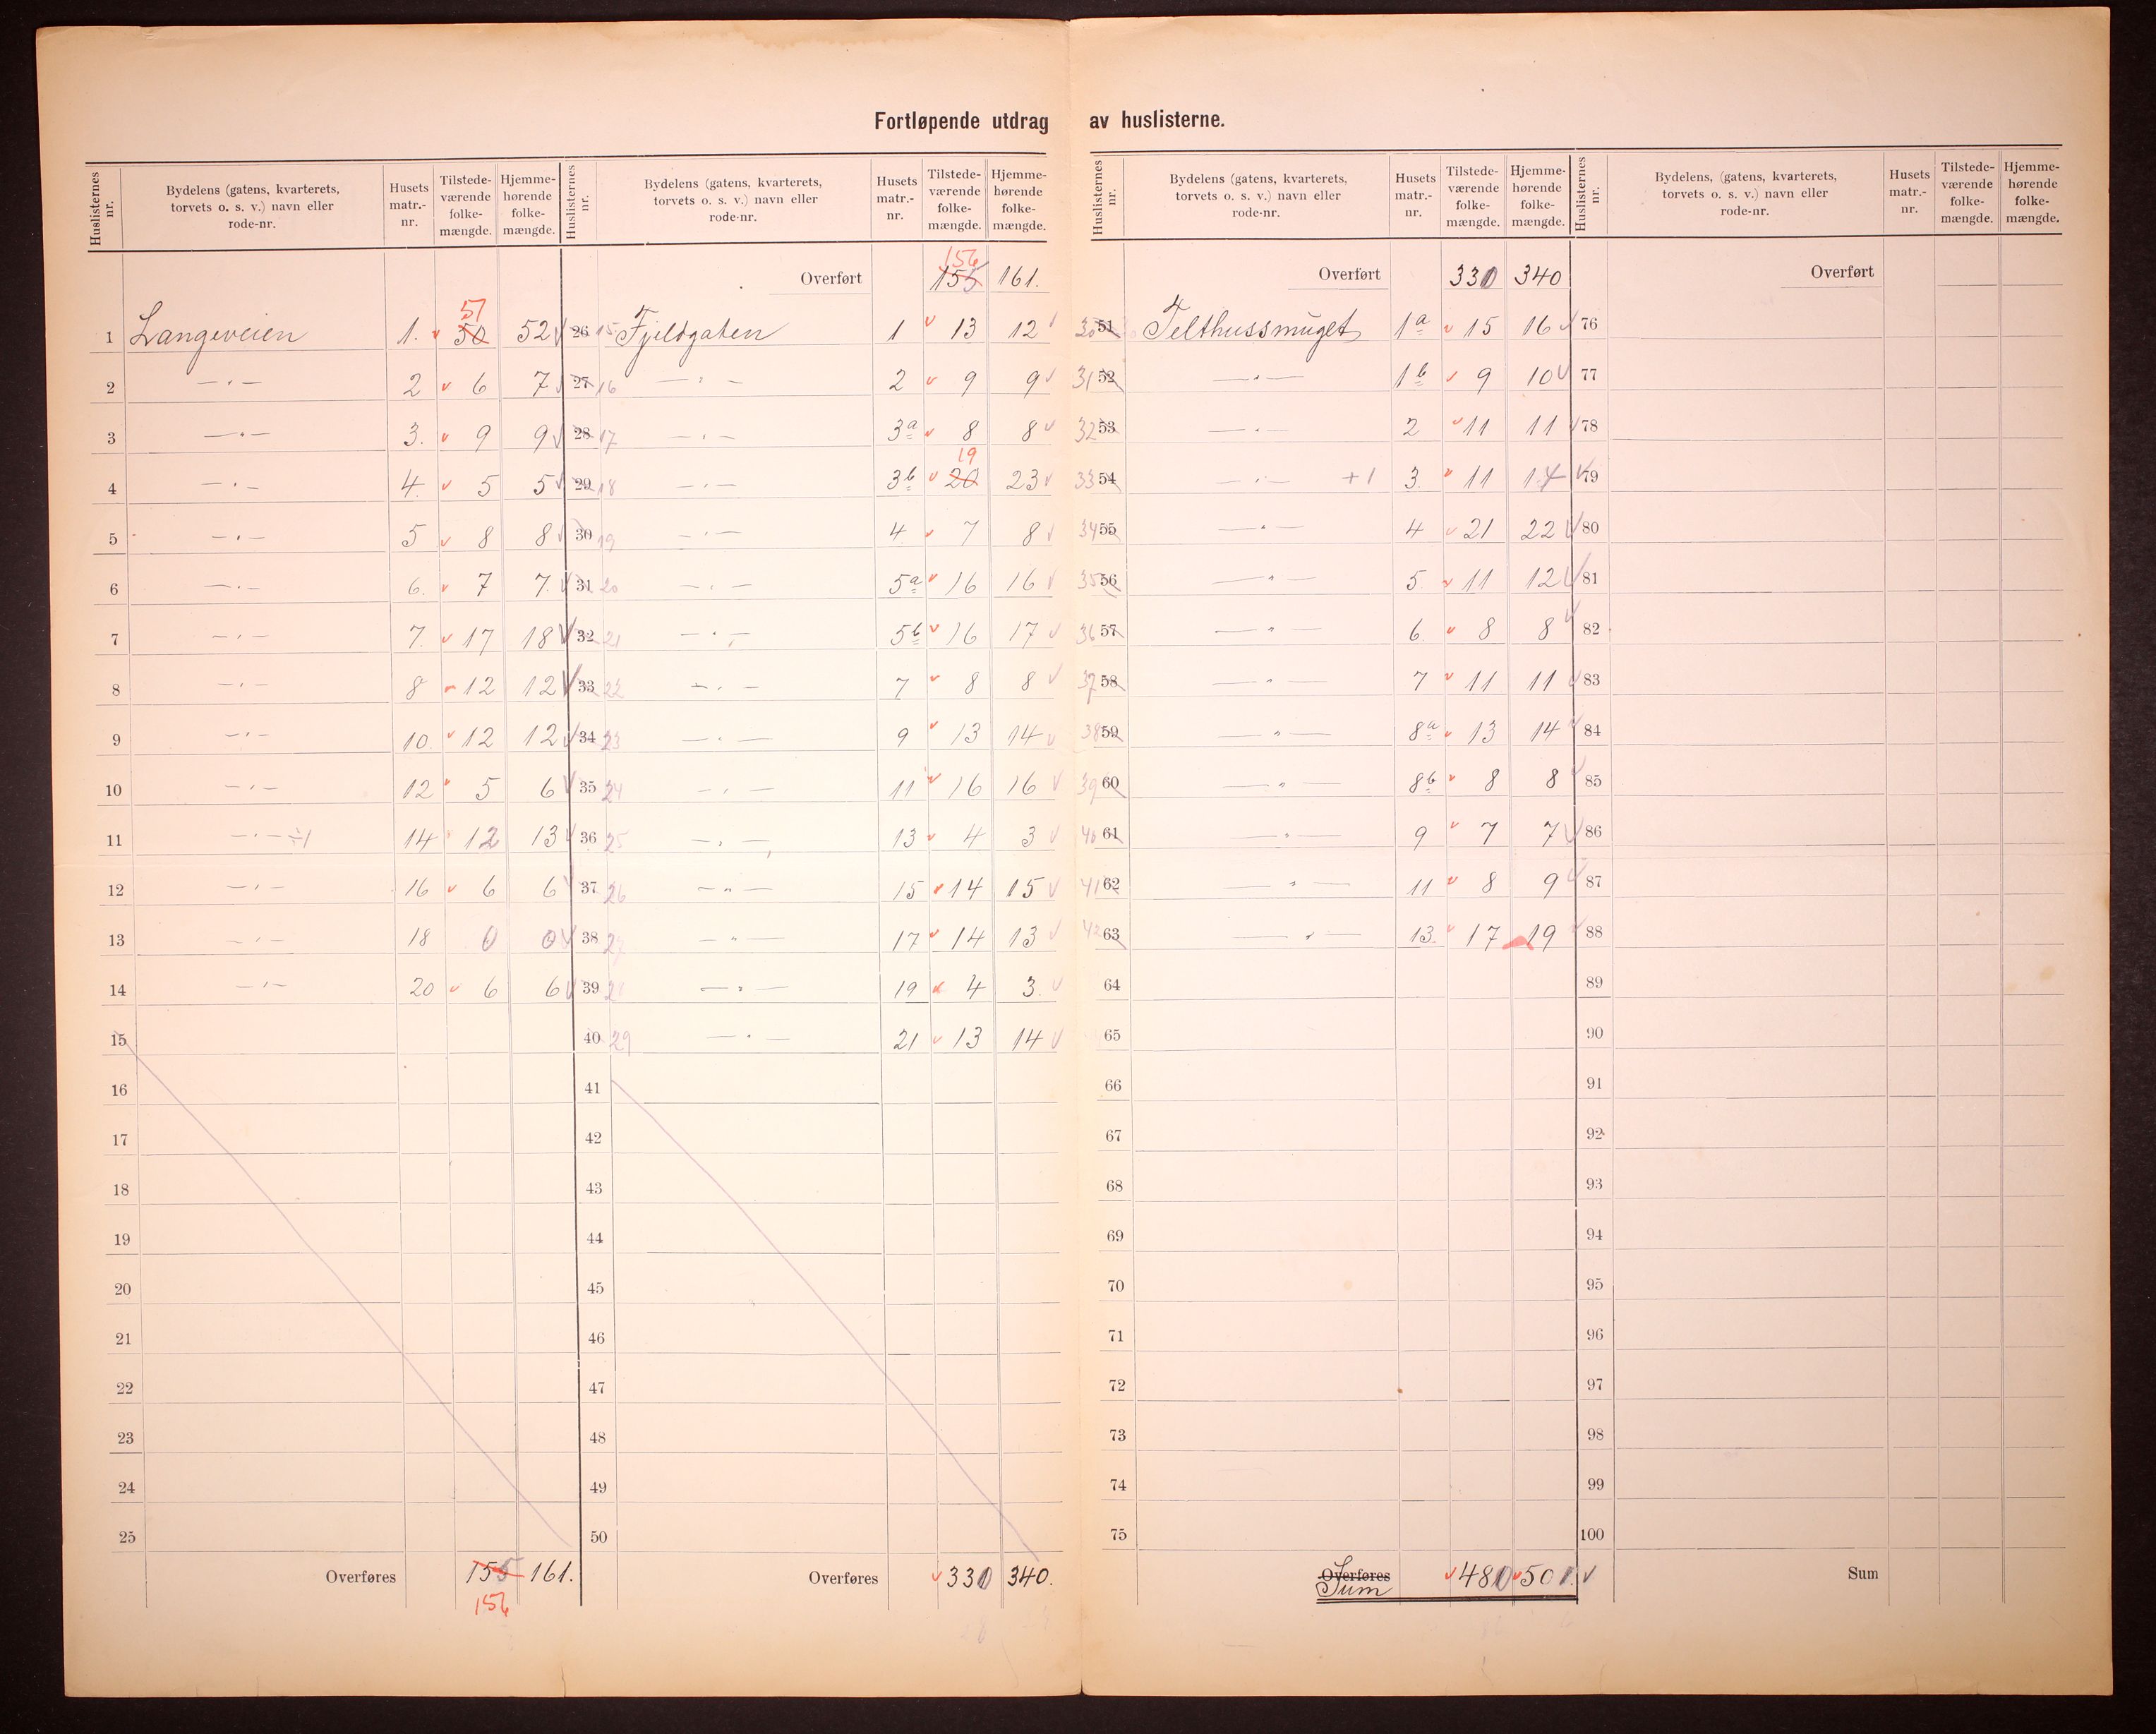 Fortløpende utdrag av huslisterne.
Huslisternes nr. | Bydelens (gatens, kvarterets, torvets o. s. v.) navn eller rode-nr. | Husets matr.-nr. | Tilstede-værende folke-mængde. | Hjemme-hørende folke-mængde.
1 Langeveien 1. 50 51 52
2 —"— 2 6 7
3 —"— 3. 9 9
4 —"— 4. 5 5
5 —"— 5 8 8
6 —"— 6. 7 7.
7 —"— 7. 17 18
8 —"— 8 12 12
9 —"— 10. 12 12
10 —"— 12 5 6
11 —"— ÷1 14 12 13
12 —"— 16 6 6
13 —"— 18 0 0
14 —"— 20 6 6
15
16
17
18
19
20
21
22
23
24
25
Overføres 155 156 161.
Huslisternes nr. | Bydelens (gatens, kvarterets, torvets o. s. v.) navn eller rode-nr. | Husets matr.-nr. | Tilstede-værende folke-mængde. | Hjemme-hørende folke-mængde.
Overført 155 156 161.
26 15 Fjeldgaten 1 13 12
27 16 —"— 2 9 9
28 17 —"— 3a 8 8
29 18 —"— 3b 20 19 23
30 19 —"— 4 7 8
31 20 —"— 5a 16 16
32 21 —"— 5b 16 17
33 22 —"— 7 8 8
34 23 —"— 9 13 14
35 24 —"— 11 16 16
36 25 —"— 13 4 3
37 26 —"— 15 14 15
38 27 —"— 17 14 13
39 28 —"— 19 4 3.
40 29 —"— 21 13 14
41
42
43
44
45
46
47
48
49
50
Overføres 330 340.
Huslisternes nr. | Bydelens (gatens, kvarterets, torvets o. s. v.) navn eller rode-nr. | Husets matr.-nr. | Tilstede-værende folke-mængde. | Hjemme-hørende folke-mængde.
Overført 330 340
30 51 Telthussmuget 1a 15 16
31 52 —"— 1b 9 10
32 53 —"— 2 11 11
33 54 —"— +1 3. 11 14
34 55 —"— 4 21 22
35 56 —"— 5. 11 12
36 57 —"— 6. 8 8
37 58 —"— 7 11 11
38 59 —"— 8a 13 14
39 60 —"— 8b 8 8
40 61 —"— 9 7 7
41 62 —"— 11 8 9
42 63 —"— 13. 17 19
64
65
66
67
68
69
70
71
72
73
74
75
Overføres
Sum 480 501.
Huslisternes nr. | Bydelens, (gatens, kvarterets, torvets o. s. v.) navn eller rode-nr. | Husets matr.-nr. | Tilstede-værende folke-mængde. | Hjemme-hørende folke-mængde.
Overført
76
77
78
79
80
81
82
83
84
85
86
87
88
89
90
91
92
93
94
95
96
97
98
99
100
Sum